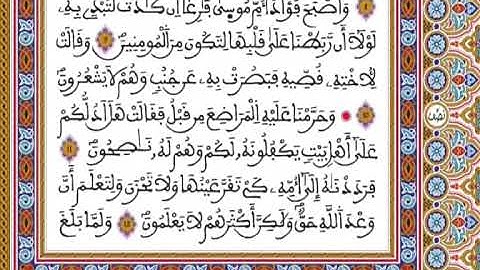 وَأَصْبَحَ فُؤَادُ أُمِّ مُوسِىٰ فَٰرِغًا اِن كَادَتْ لَتُبْدِے بِهِۦ
لَوْلَآ أَن رَّبَطْنَا عَلَىٰ قَلْبِهَا لِتَكُونَ مِنَ ٱلْمُومِنِينَ وَقَالَتْ
لِأُخْتِهِۦ قُصِّيهِ فَبَصُرَتْ بِهِۦ عَن جُنُبٍ وَهُمْ لَا يَشْعُرُونَ
وَحَرَّمْنَا عَلَيْهِ اِ۬لْمَرَاضِعَ مِن قَبْلُ فَقَالَتْ هَلَ اَدُلُّكُمْ
عَلَىٰٓ أَهْلِ بَيْتٍ يَكْفُلُونَهُۥ لَكُمْ وَهُمْ لَهُۥ نَٰصِحُونَ
فَرَدَدْنَٰهُ إِلَىٰٓ أُمِّهِۦ كَےْ تَقَرَّ عَيْنُهَا وَلَا تَحْزَنَ وَلِتَعْلَمَ أَنَّ
وَعْدَ اَ۬للَّهِ حَقٌّ وَلَٰكِنَّ أَكْثَرَهُمْ لَا يَعْلَمُونَ وَلَمَّا بَلَغَ